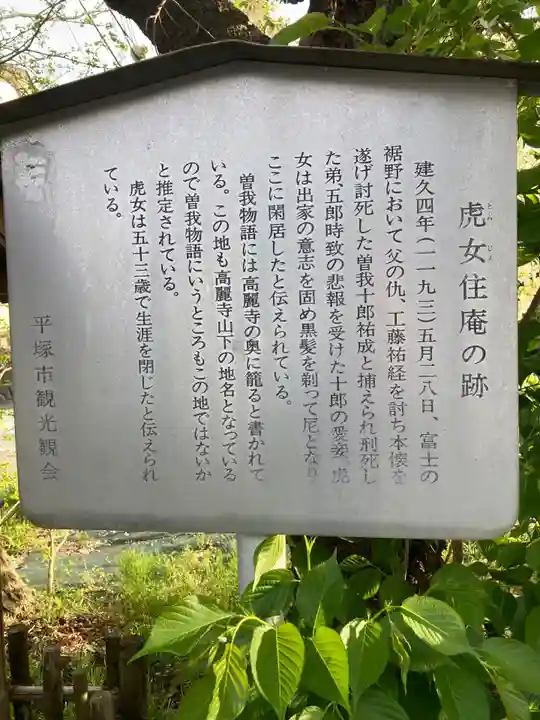 虎女住庵の跡
とらじょ
建久四年(一一九三)五月二八日、富士の
裾野において父の仇、工藤祐経を討ち本懐を
遂げ討死した曽我十郎祐成と捕えられ刑死し
た弟、五郎時致の悲報を受けた十郎の愛妾、虎
女は出家の意志を固め黒髪を剃って尼となり
ここに閑居したと伝えられている。
曽我物語には高麗寺の奥に籠ると書かれて
いる。この地も高麗寺山下の地名となっている
ので曽我物語にいうところもこの地ではないか
と推定されている。
虎女は五十三歳で生涯を閉じたと伝えられ
ている。
平塚市観光観会